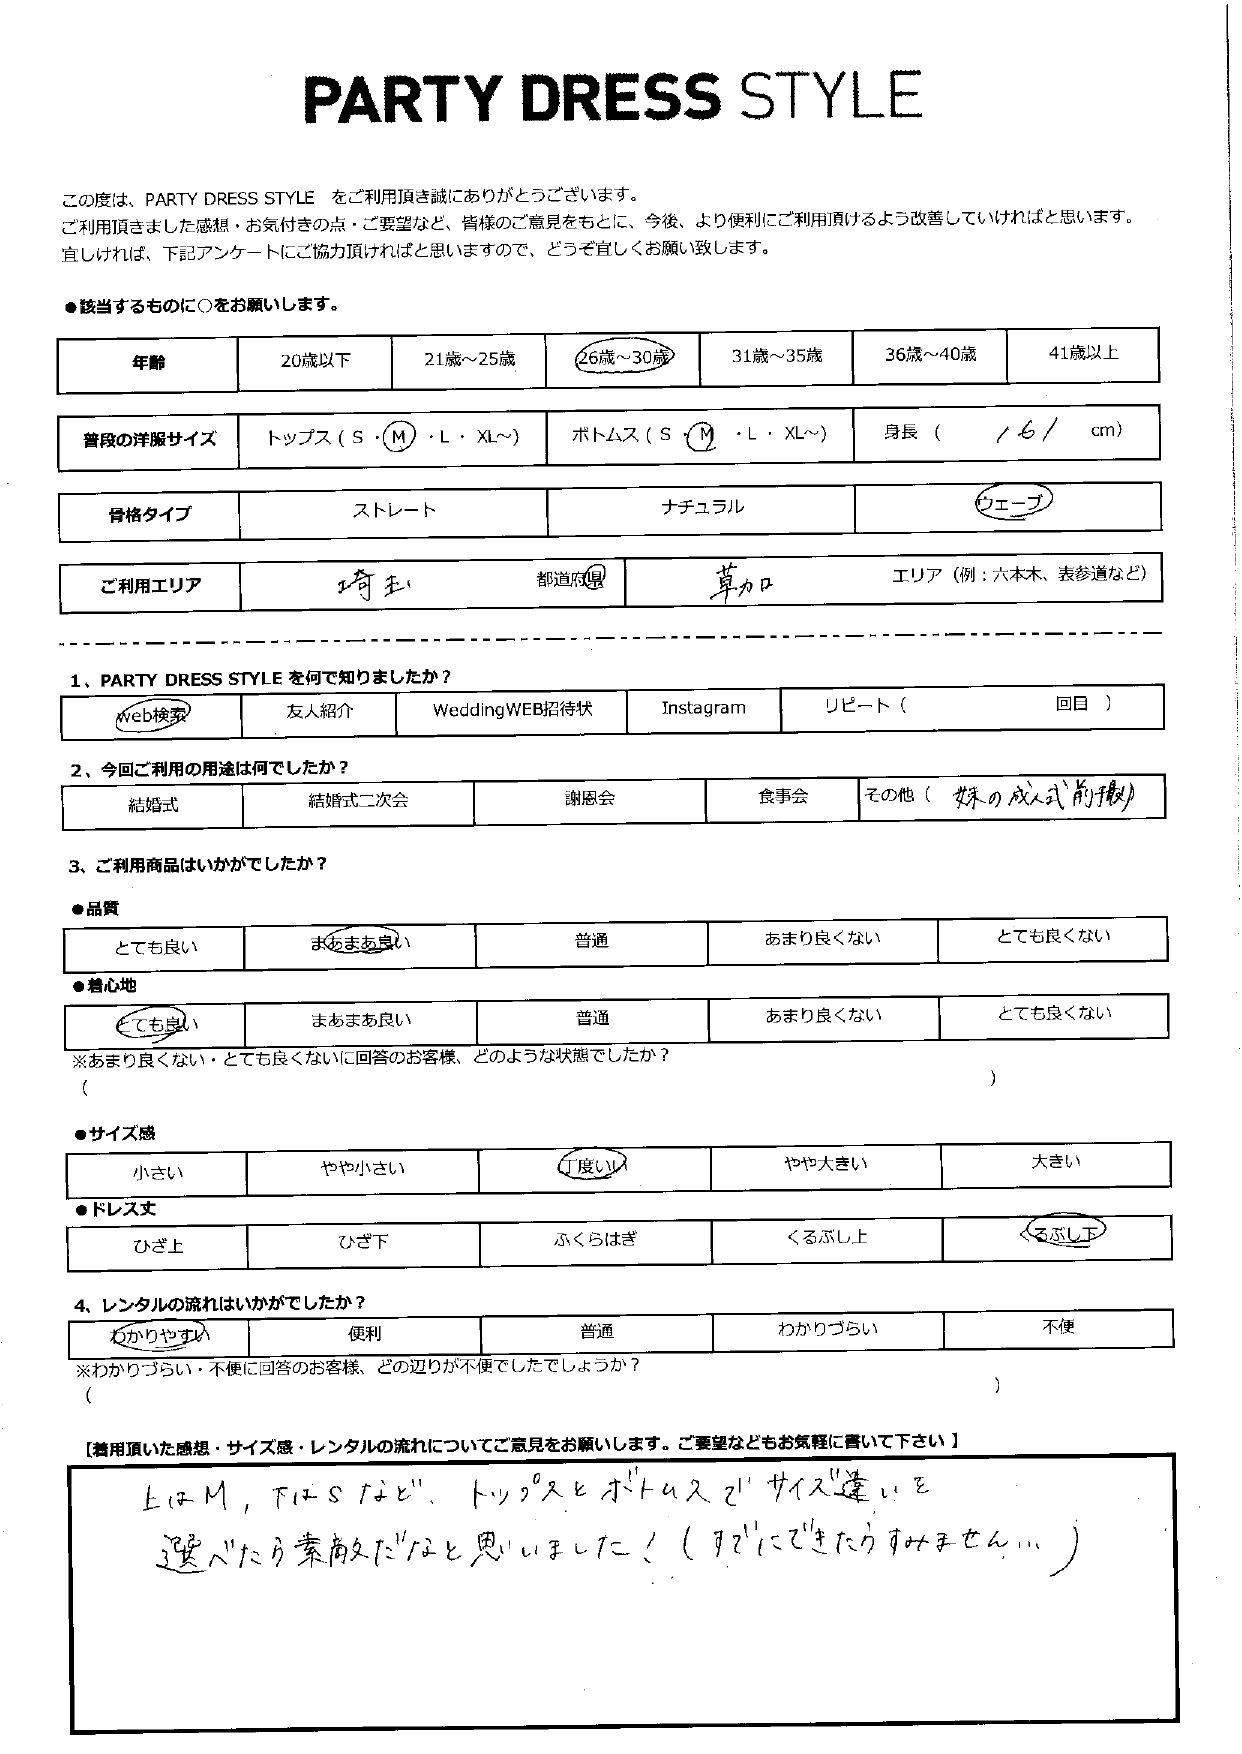 PARTY DRESS STYLE
この度は、PARTY DRESS STYLE をご利用頂き誠にありがとうございます。
ご利用頂きました感想・お気付きの点・ご要望など、皆様のご意見をもとに、今後、より便利にご利用頂けるよう改善していければと思います。
宜しければ、下記アンケートにご協力頂ければと思いますので、どうぞ宜しくお願い致します。
●該当するものに○をお願いします。
年齢 20歳以下 21歳～25歳 26歳～30歳 31歳～35歳 36歳～40歳 41歳以上
普段の洋服サイズ トップス ( S ・ M ・ L ・ XL～) ボトムス ( S ・ M ・ L ・ XL～) 身長 ( 161 cm)
骨格タイプ ストレート ナチュラル ウェーブ
ご利用エリア 埼玉 都道府県 草加 エリア（例：六本木、表参道など）
1、PARTY DRESS STYLE を何で知りましたか？
web検索 友人紹介 WeddingWEB招待状 Instagram リピート（ 回目 ）
2、今回ご利用の用途は何でしたか？
結婚式 結婚式二次会 謝恩会 食事会 その他（ 妹の成人式前撮り
3、ご利用商品はいかがでしたか？
●品質
とても良い まあまあ良い 普通 あまり良くない とても良くない
●着心地
とても良い まあまあ良い 普通 あまり良くない とても良くない
※あまり良くない・とても良くないに回答のお客様、どのような状態でしたか？
( )
●サイズ感
小さい やや小さい 丁度いい やや大きい 大きい
●ドレス丈
ひざ上 ひざ下 ふくらはぎ くるぶし上 くるぶし下
4、レンタルの流れはいかがでしたか？
わかりやすい 便利 普通 わかりづらい 不便
※わかりづらい・不便に回答のお客様、どの辺りが不便でしたでしょうか？
( )
【着用頂いた感想・サイズ感・レンタルの流れについてご意見をお願いします。ご要望などもお気軽に書いて下さい 】
上はM, 下はSなど、トップスとボトムスでサイズ違いを
選べたら素敵だなと思いました！(すでにできたらすみません…)